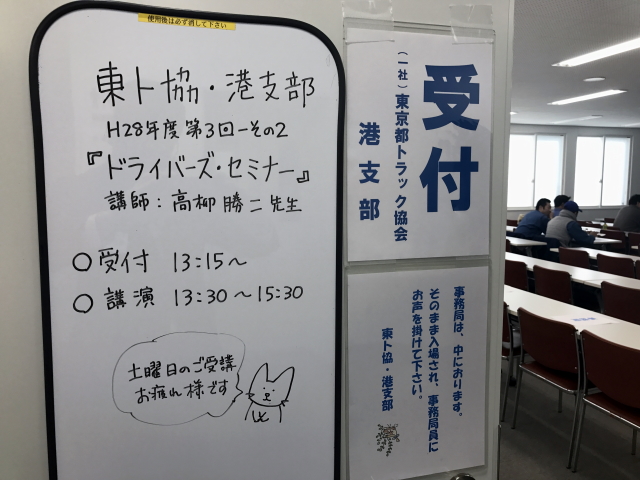 使用後は必ず消して下さい
東ト協・港支部
H28年度第3回-その2
『ドライバーズ・セミナー』
講師：高柳勝二先生
○受付 13:15～
○講演 13:30～15:30
土曜日のご受講
お疲れ様です
受付
(一社)東京都トラック協会
港支部
事務局は、中におります。
そのまま入場され、事務局員に
お声を掛けて下さい。
東ト協・港支部